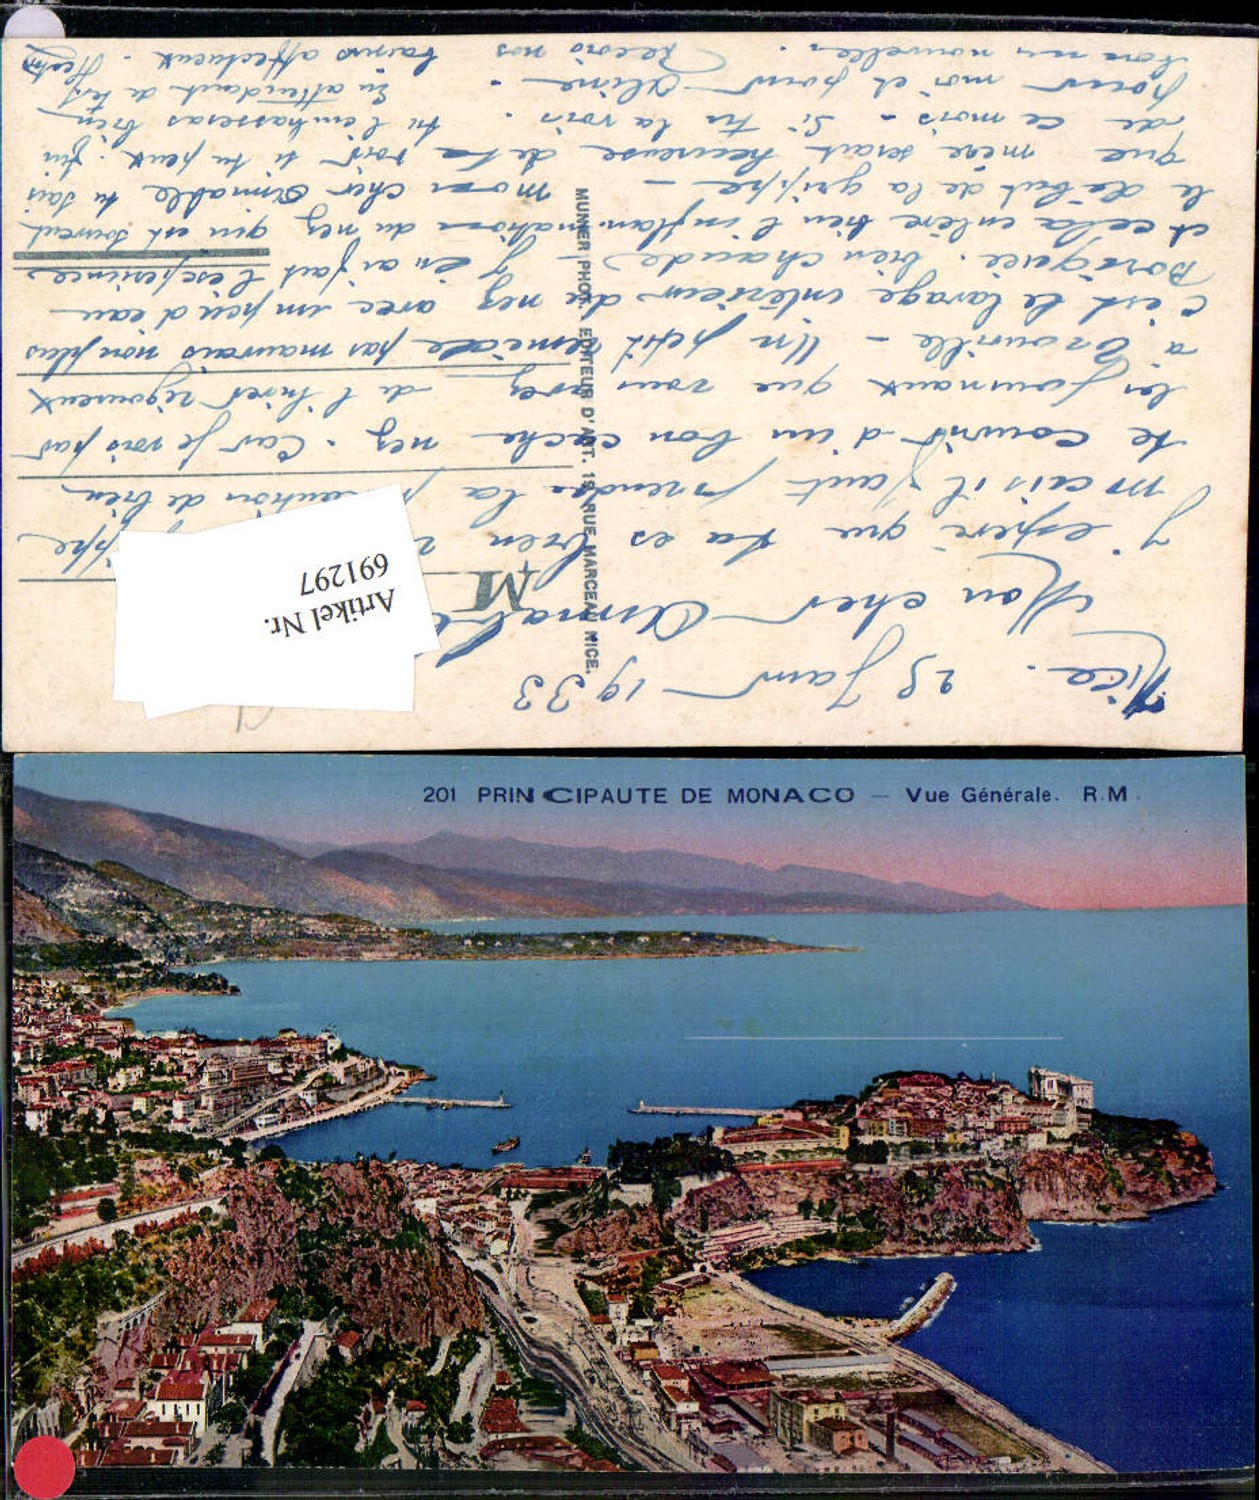 Nice. 25 Janv 1933
Mon cher Aimable
J'espère que tu es bien
mais il faut prendre la précaution de bien
te couvrir d'un bon cache nez. Car je vois par
les journaux que vous avez de l'hiver rigoureux
à Trouville - Un petit remède pas mauvais non plus
c'est le lavage intérieur du nez avec un peu d'eau
Boriquée. bien chaude. J'en ai fait l'expérience
et cela enlève bien l'inflammation du nez qui est souvent
le début de la grippe - mon cher Aimable tu sais
que mère serait heureuse de te voir si tu peux. fin
de ce mois - Si tu la vois. tu l'embrasseras bien
pour moi et pour Céline. En attendant de tes
bonnes nouvelles. Reçois nos baisers affectueux.
M
MUNIER PHOT. EDITEUR D'ART. 19, RUE MARCEAU NICE.
Artikel Nr.
691297
201 PRINCIPAUTE DE MONACO — Vue Générale. R.M.